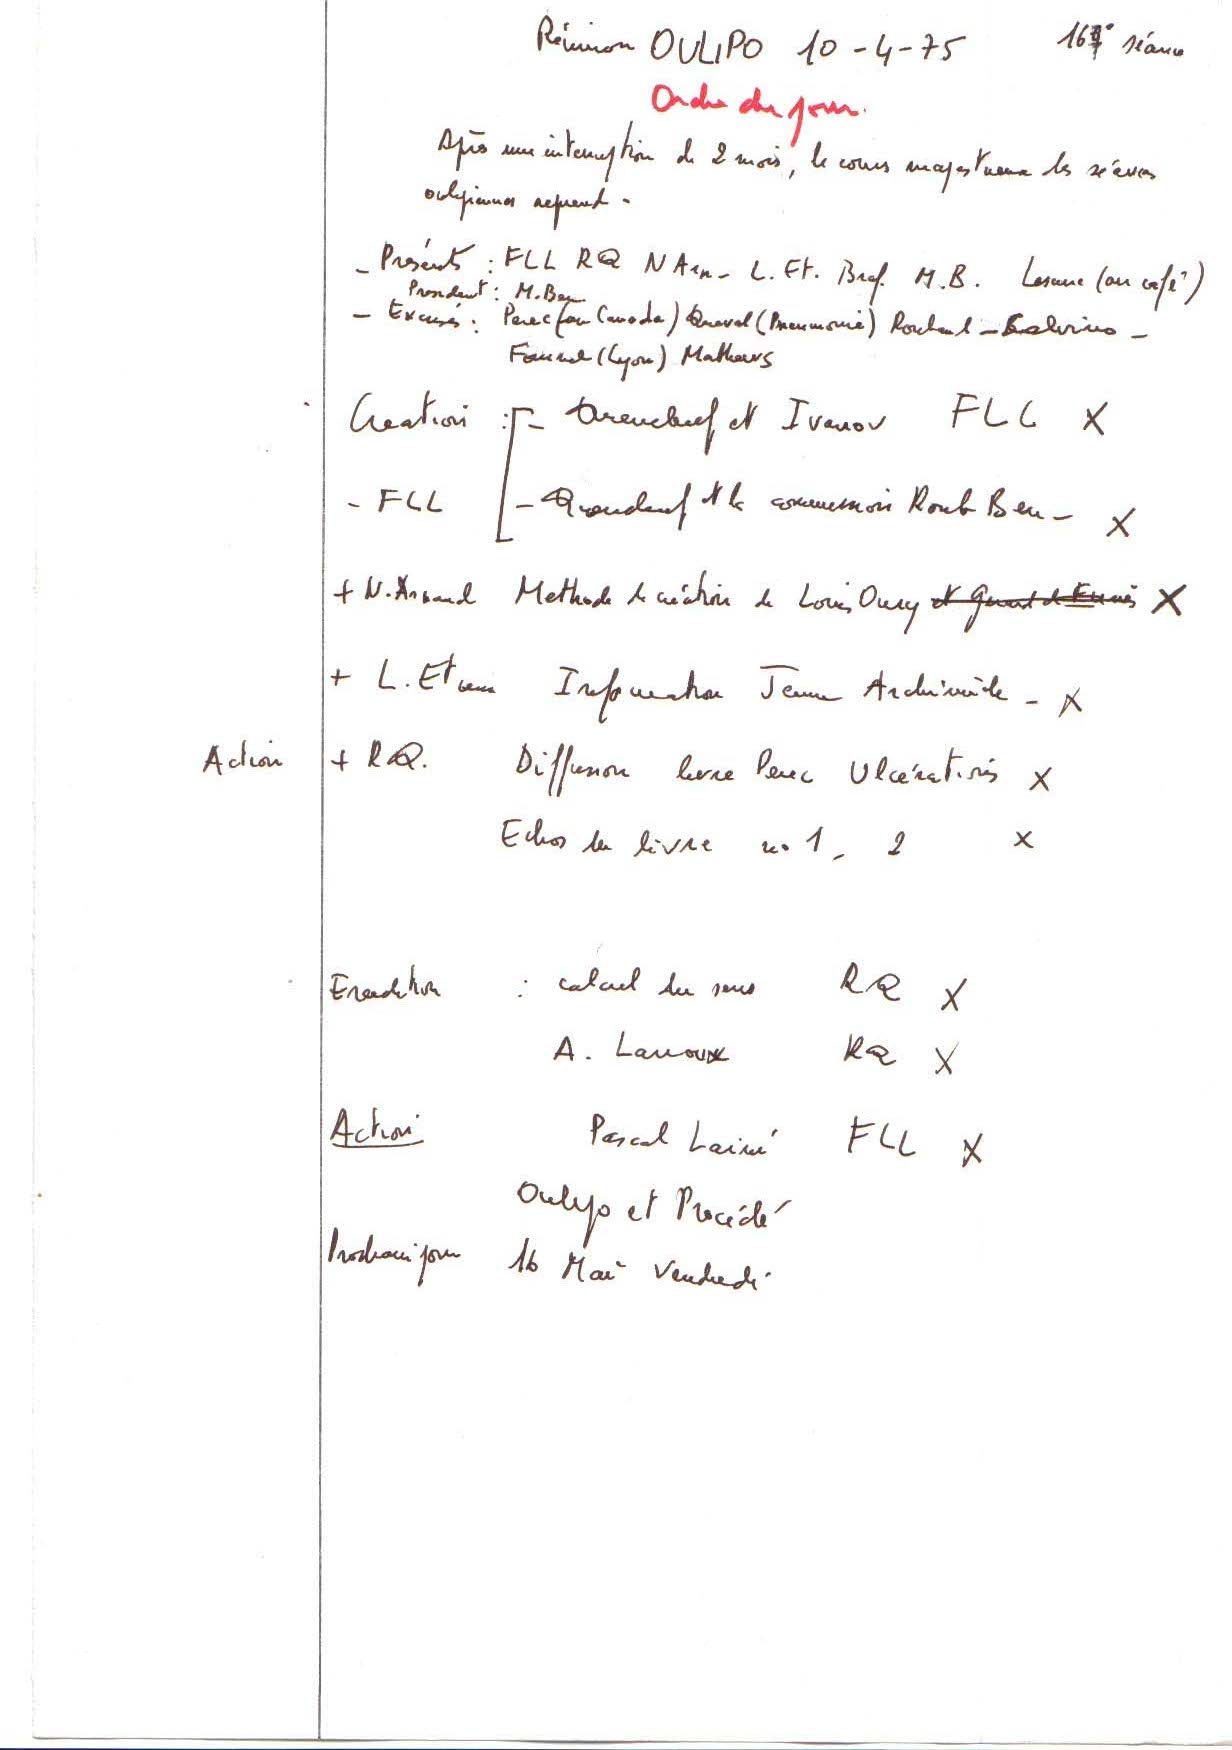 Réunion OULIPO 10-4-75 16 séance
Ordre du jour.
Après une interruption de 2 mois, le cours majestueux des séances
oulipiennes reprend.
- Présents : FLL RQ N Arn- L. Et. Braf. M.B. Lescure (au café)
Président : M. Ben
- Excusés : Perec (au Canada) Queval (Pneumonie) Roubaud - Calvino -
Fournel (Lyon) Mathews
Création : - et Ivanov FLL X
- FLL - et la commission Roub Ben - X
+ N. Arnaud Methode de création de Louis Oury et X
+ L. Etienne Information Jeune Archimède - X
Action + RQ. Diffusion livre Perec Ulcérations X
Echos du livre no 1 - 2 X
Erudition : calcul du sens RQ X
A. Lanoux RQ X
Action Pascal Lainé FLL X
Oulipo et Procédé
Prochain jour 16 Mai Vendredi